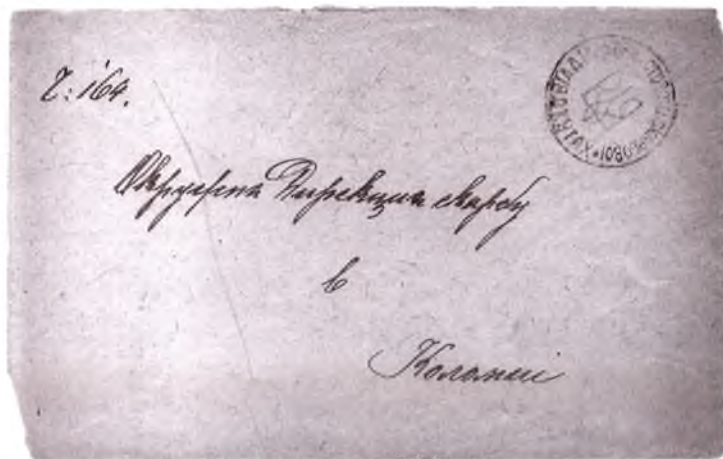 Ч: 164.
Окружна Дирекция скарбу
в
Коломиї